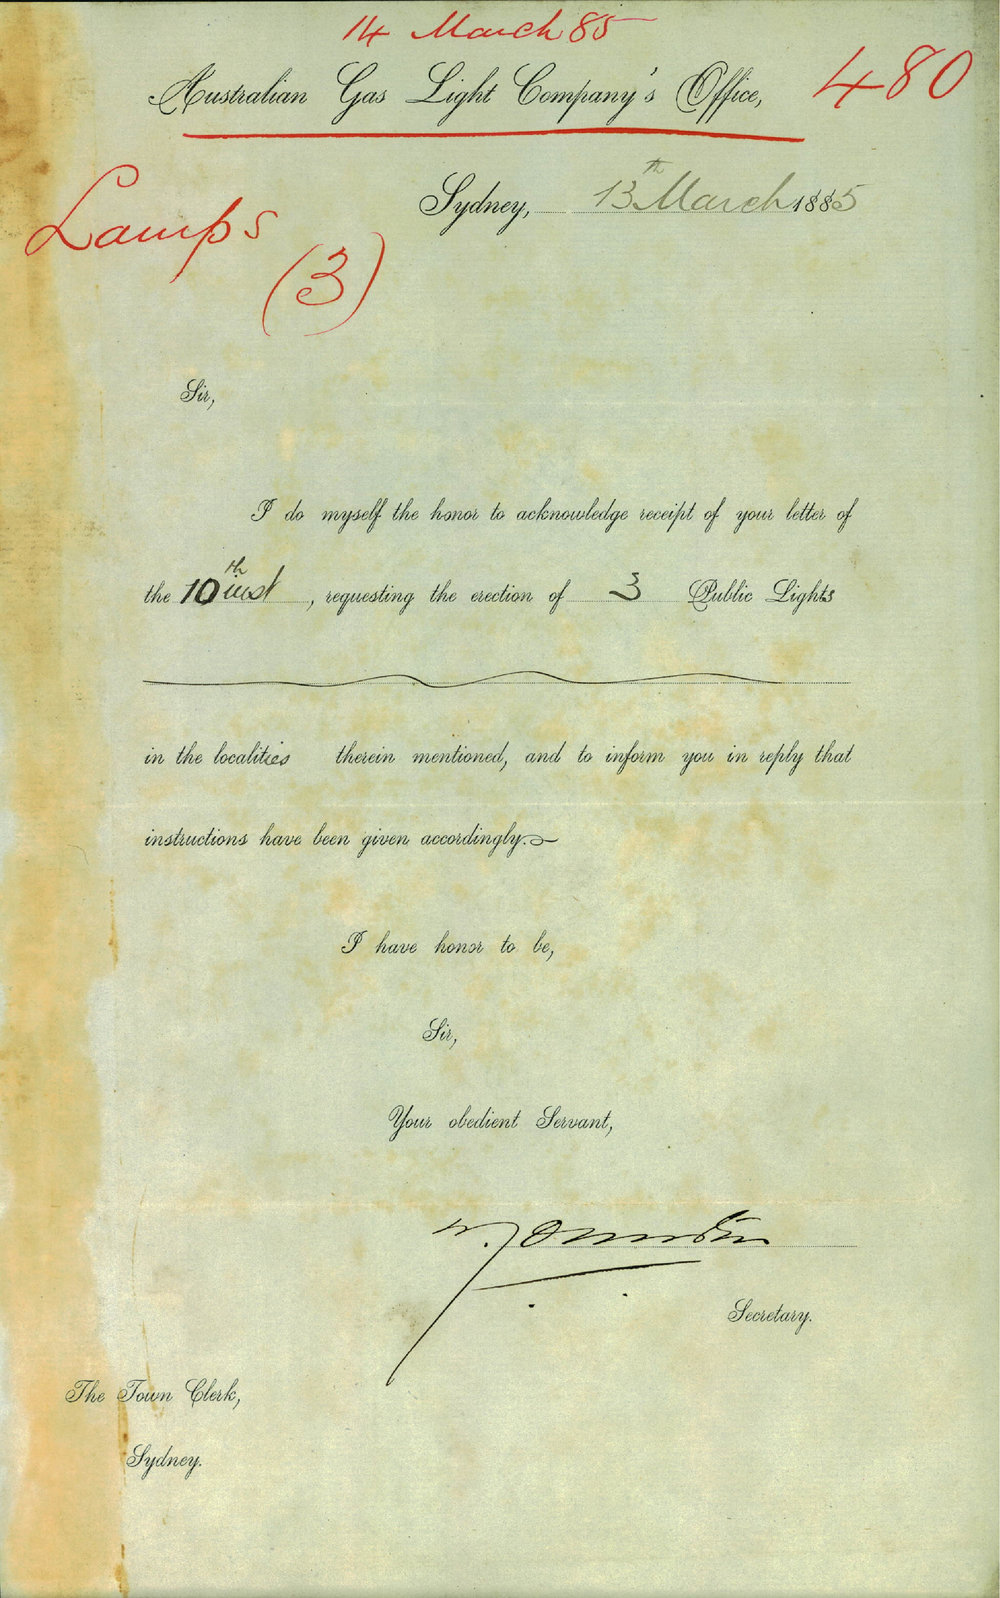 14 March 85
480
Australian Gas Light Company's Office,
Sydney, 13th March 1885
Lamps
(3)
Sir,
I do myself the honor to acknowledge receipt of your letter of
the 10th inst, requesting the erection of 3 Public Lights
in the localities therein mentioned, and to inform you in reply that
instructions have been given accordingly.
I have honor to be,
Sir,
Your obedient Servant,
Secretary.
The Town Clerk,
Sydney.